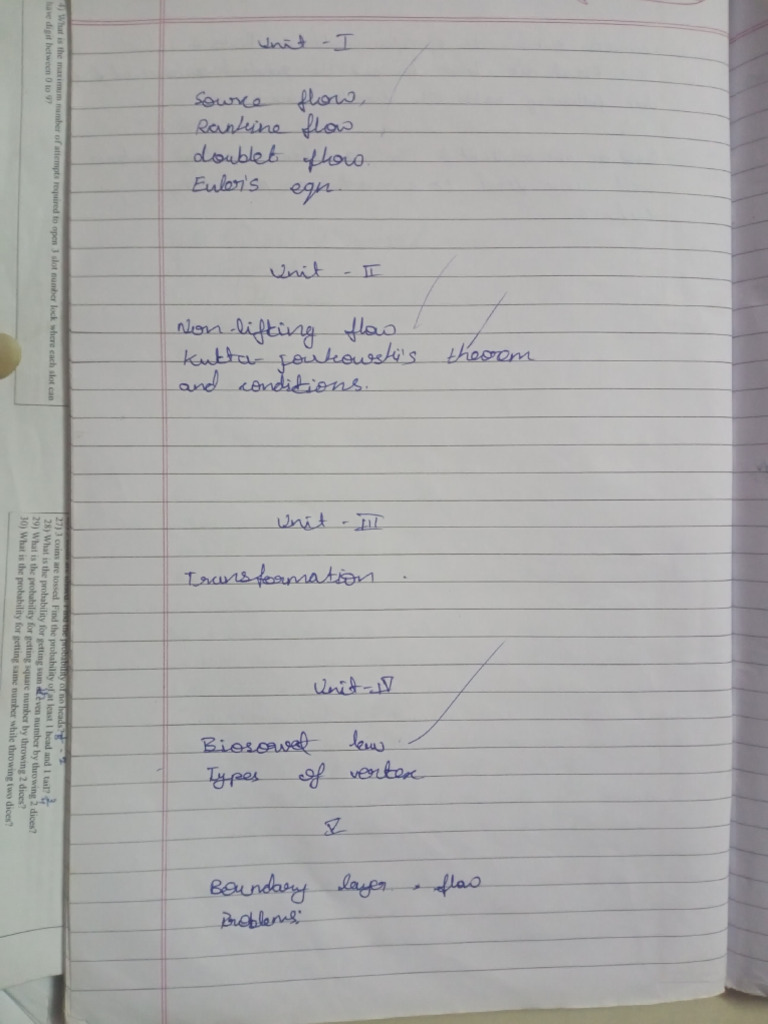 4) What is the maximum number of attempts required to open 3 slot number lock where each slot can
have digit between 0 to 9?
27) 3 coins are tossed. Find the probability of no heads?
28) What is the probability of at least 1 head and 1 tail?
29) What is the probability for getting sum even number by throwing 2 dices?
29) What is the probability for getting square number by throwing 2 dices?
30) What is the probability for getting same number while throwing two dices?
Unit - I
Source flow,
Rankine flow
doublet flow.
Euler's eqn.
Unit - II
Non-lifting flow
Kutta-joukowski's theorem
and conditions.
Unit - III
Transformation.
Unit-IV
Biosavat law
Types of vortex
V
Boundary layer . flow
Problems: